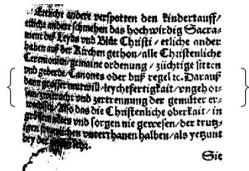 Etliche andere verspotten den Kindertauff/
etliche andere schmehen das hochwirdig Sacra-
ment des Leybs und Blůts Christi / etliche ander
haben auff der Kirchen gethon/ alle Christenliche
Ceremonien/ gemaine ordenung / züchtige sitten
und geberde/ Canones oder buß regel rc. Darauß
dann grosser mutwill/ leychtfertigkait/ ungehor-
zwitracht und zertrennung der gemüter er-
das die Christenliche oberkait/ in
und sorgen nie gewesen/ der trutz-
underthanen halben/ als yetzunt
bey
Sie